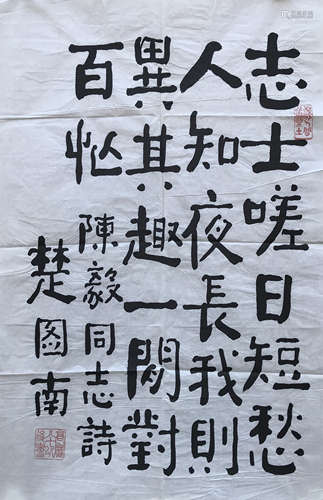 志士嗟日短愁
人知夜長我則
異其趣一閑對
百忙
陳毅同志詩
楚图南